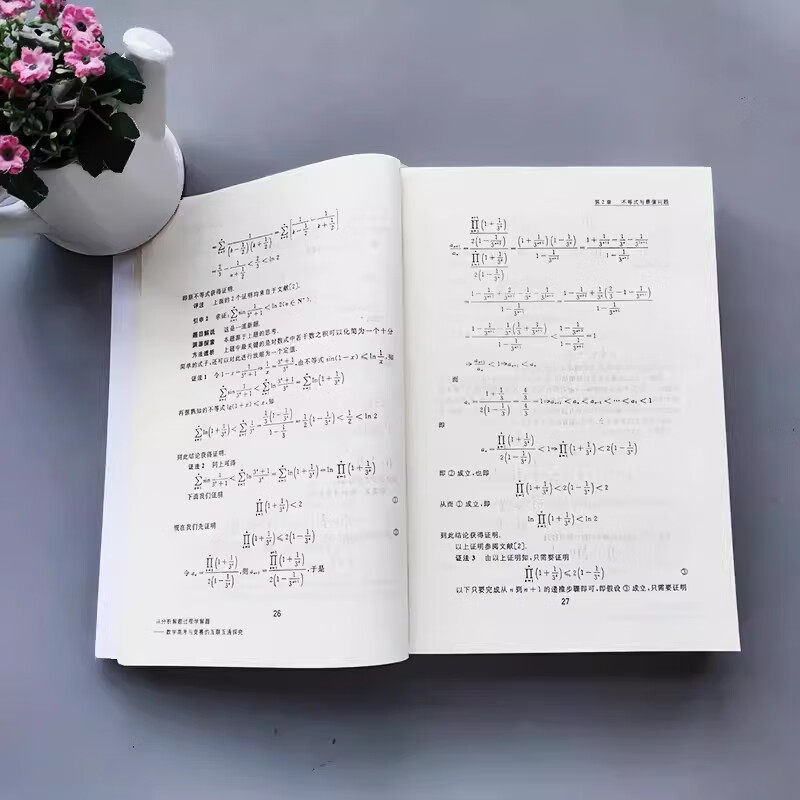 $=\sum_{k=1}^{n}\frac{1}{\left(k-\frac{1}{2}\right)\left(k+\frac{1}{2}\right)}=\sum_{k=1}^{n}\left[\frac{1}{k-\frac{1}{2}}-\frac{1}{k+\frac{1}{2}}\right]$
$=\frac{2}{3}-\frac{1}{n+\frac{1}{2}}<\frac{2}{3}<\ln 2$
即原不等式获得证明.
评注 上面的2个证明均来自于文献[2].
引申2 求证:$\sum_{k=1}^{n}\sin\frac{1}{3^k+1}<\ln 2(n\in N^*)$.
题目解说 这是一道新题.
渊源探索 本题源于上题的思考.
方法透析 上题中最关键的是对数式中若干数之积可以化简为一个十分
简单的式子,还可以对此进行放缩为一个定值.
证法1 令$1-x=\frac{1}{3^k+1}\Rightarrow\frac{1}{x}=\frac{3^k+1}{3^k}$,由不等式$\sin(1-x)\leqslant\ln\frac{1}{x}$,知
$\sum_{k=1}^{n}\sin\frac{1}{3^k+1}<\sum_{k=1}^{n}\ln\frac{3^k+1}{3^k}=\sum_{k=1}^{n}\ln\left(1+\frac{1}{3^k}\right)$
再据熟知的不等式$\lg(1+x)\leqslant x$,知
$\sum_{k=1}^{n}\ln\left(1+\frac{1}{3^k}\right)<\sum_{k=1}^{n}\frac{1}{3^k}=\frac{\frac{1}{3}\left(1-\frac{1}{3^n}\right)}{1-\frac{2}{3}}=\frac{1}{2}\left(1-\frac{1}{3^n}\right)<\frac{1}{2}<\ln 2$
到此结论获得证明.
证法2 同上可得
$\sum_{k=1}^{n}\sin\frac{1}{3^k+1}<\sum_{k=1}^{n}\ln\frac{3^k+1}{3^k}=\sum_{k=1}^{n}\ln\left(1+\frac{1}{3^k}\right)=\ln\prod_{k=1}^{n}\left(1+\frac{1}{3^k}\right)$
下面我们证明
$\prod_{k=1}^{n}\left(1+\frac{1}{3^k}\right)<2$ ①
现在我们先证明
$\prod_{k=1}^{n}\left(1+\frac{1}{3^k}\right)\leqslant 2\left(1-\frac{1}{3^n}\right)$ ②
令$a_n=\frac{\prod_{k=1}^{n}\left(1+\frac{1}{3^k}\right)}{2\left(1-\frac{1}{3^n}\right)}$,则$a_{n+1}=\frac{\prod_{k=1}^{n+1}\left(1+\frac{1}{3^k}\right)}{2\left(1-\frac{1}{3^{n+1}}\right)}$,于是
26
从分析解题过程学解题
——数学高考与竞赛的互联互通探究
第2章 不等式与最值问题
$\frac{a_{n+1}}{a_n}=\frac{\frac{\prod_{k=1}^{n+1}\left(1+\frac{1}{3^k}\right)}{2\left(1-\frac{1}{3^{n+1}}\right)}}{\frac{\prod_{k=1}^{n}\left(1+\frac{1}{3^k}\right)}{2\left(1-\frac{1}{3^n}\right)}}=\frac{\left(1+\frac{1}{3^{n+1}}\right)\left(1-\frac{1}{3^n}\right)}{1-\frac{1}{3^{n+1}}}$
而
即
$a_n=\frac{\prod_{k=1}^{n}\left(1+\frac{1}{3^k}\right)}{2\left(1-\frac{1}{3^n}\right)}<1\Rightarrow\prod_{k=1}^{n}\left(1+\frac{1}{3^k}\right)<2\left(1-\frac{1}{3^n}\right)$
即②成立,也即
$\prod_{k=1}^{n}\left(1+\frac{1}{3^k}\right)<2\left(1-\frac{1}{3^n}\right)<2$
从而①成立,即
$\ln\prod_{k=1}^{n}\left(1+\frac{1}{3^k}\right)<\ln 2$
到此结论获得证明.
以上证明参阅文献[2].
证法3 由以上证明知,只需要证明
$\prod_{k=1}^{n}\left(1+\frac{1}{3^k}\right)\leqslant 2\left(1-\frac{1}{3^n}\right)$ ③
以下只要完成从n到n+1的递推步骤即可,即假设③成立,只需要证明
27